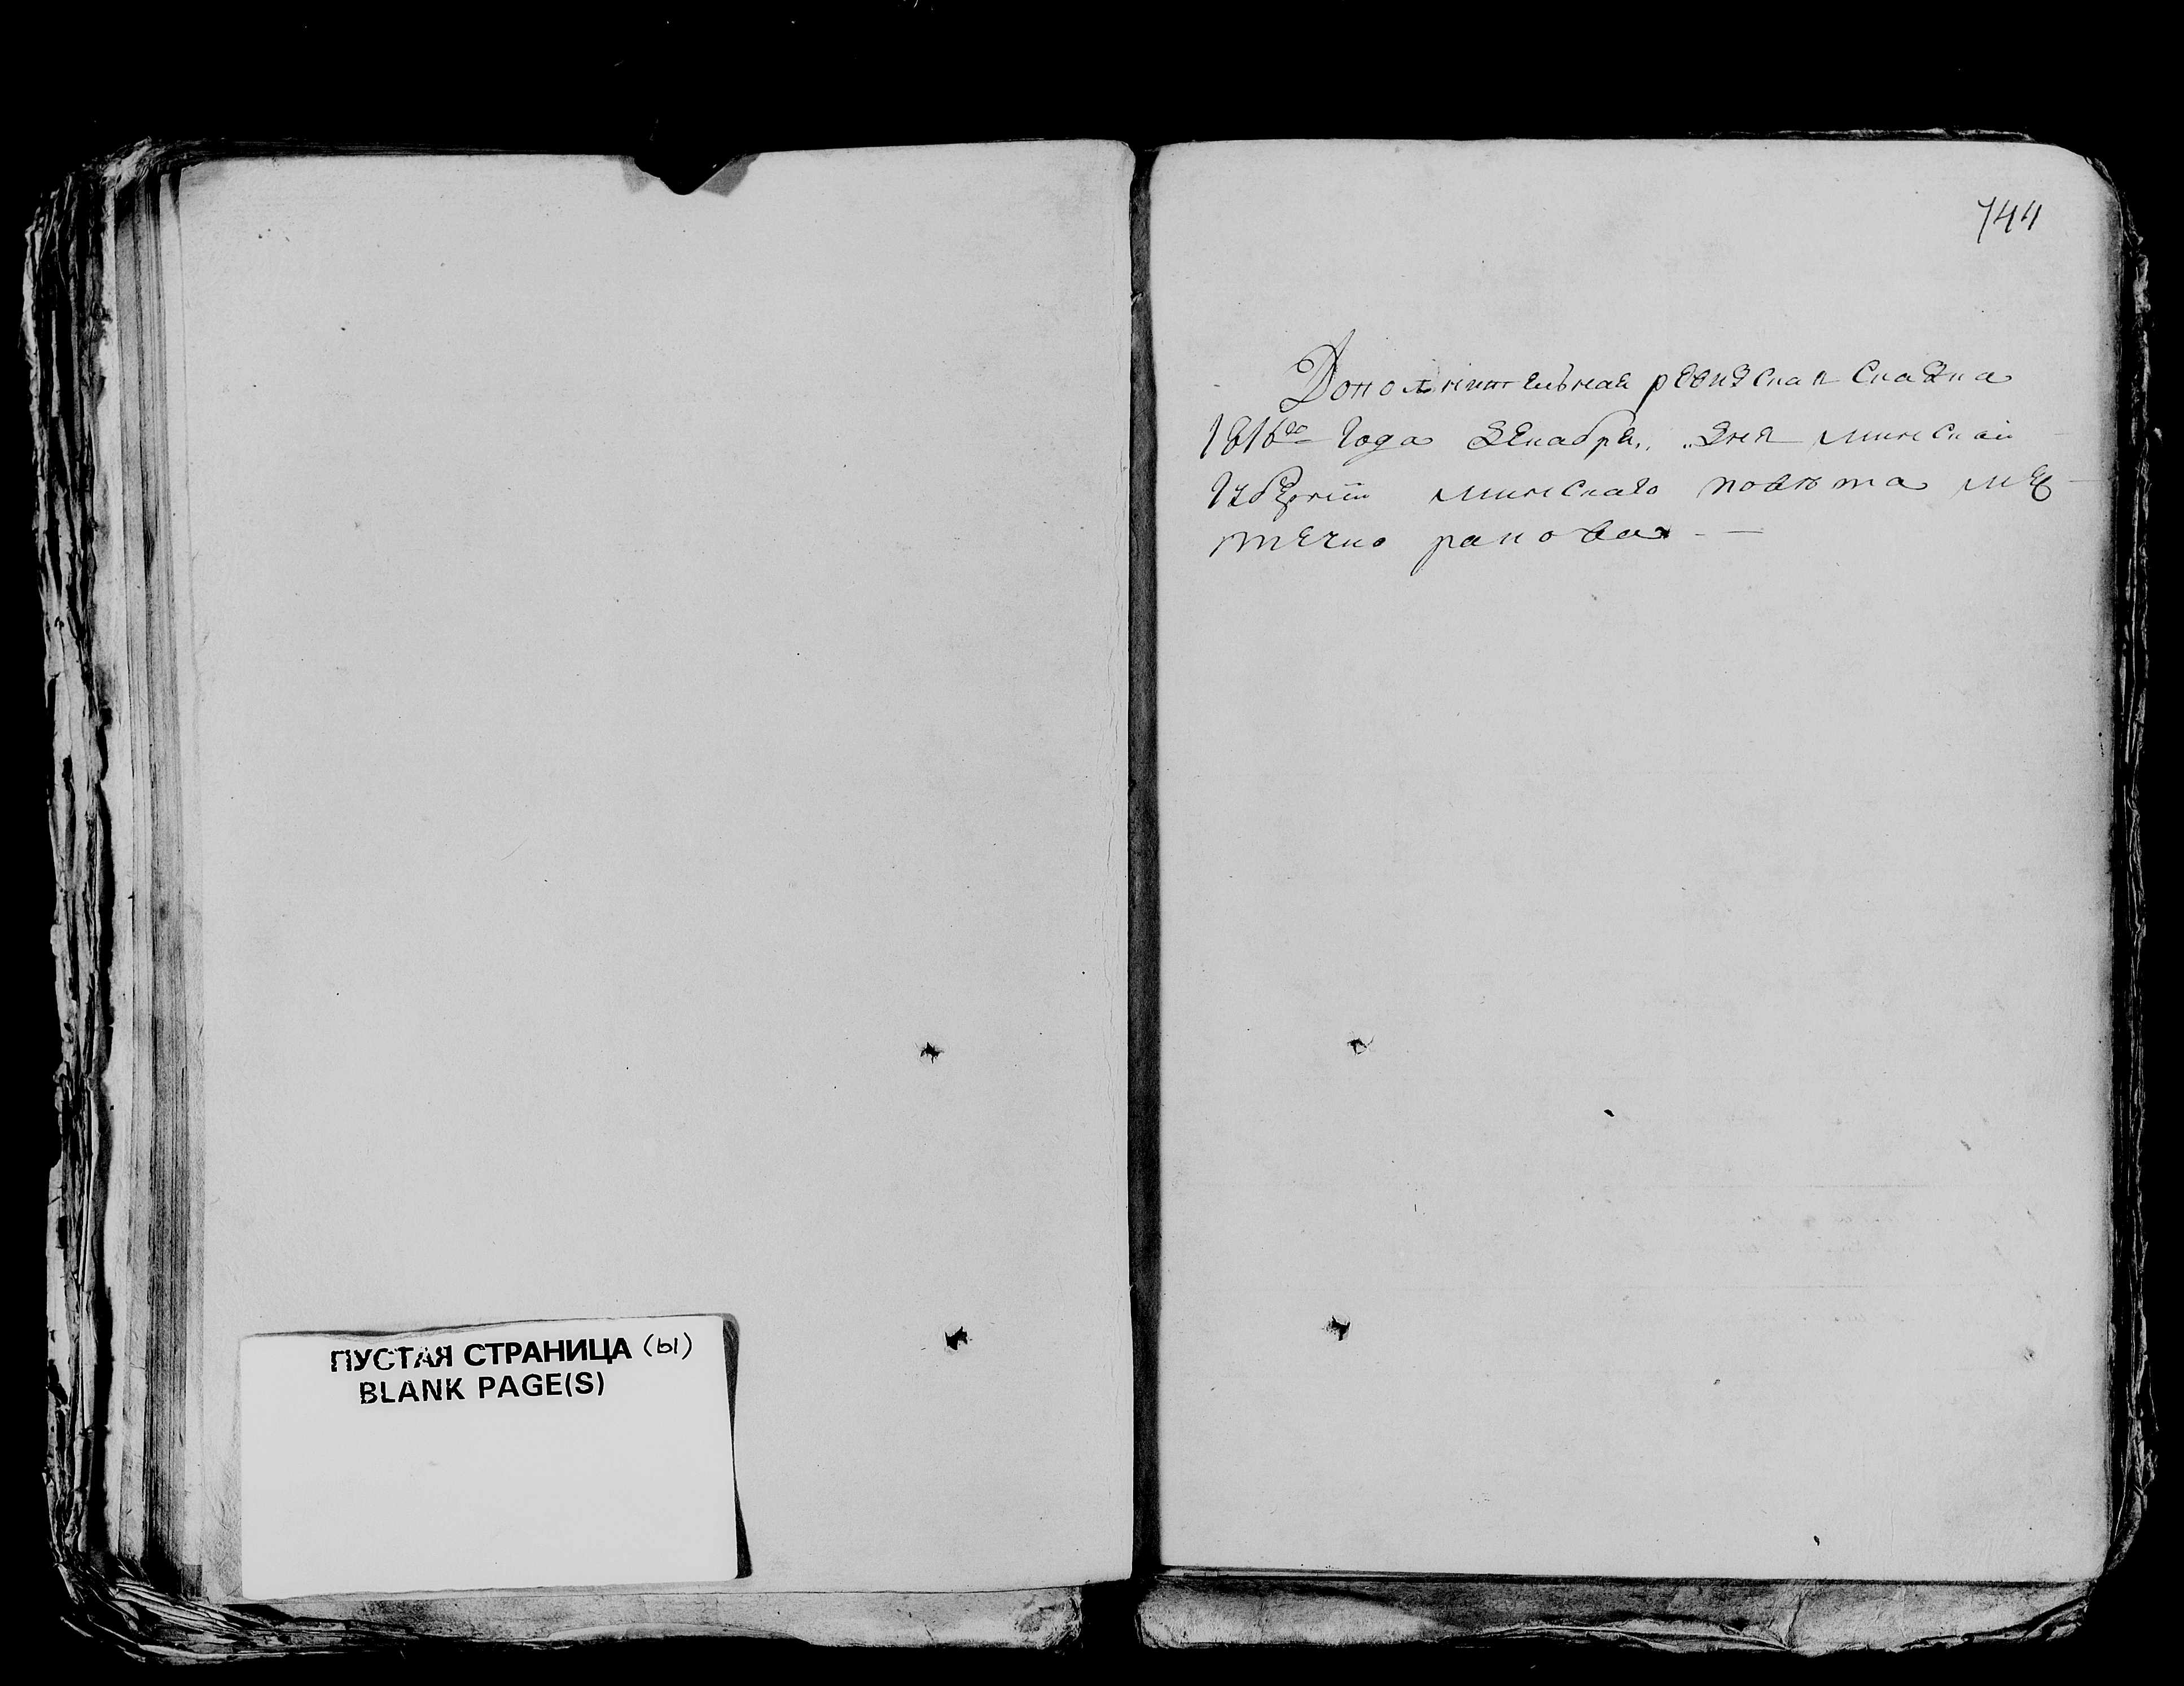 ПУСТАЯ СТРАНИЦА (ы)
BLANK PAGE(S)
744
Дополнительная ревизская сказка
1816го года декабря „ „ дня минской
губернии минскаго повѣта ме
стечко ракова